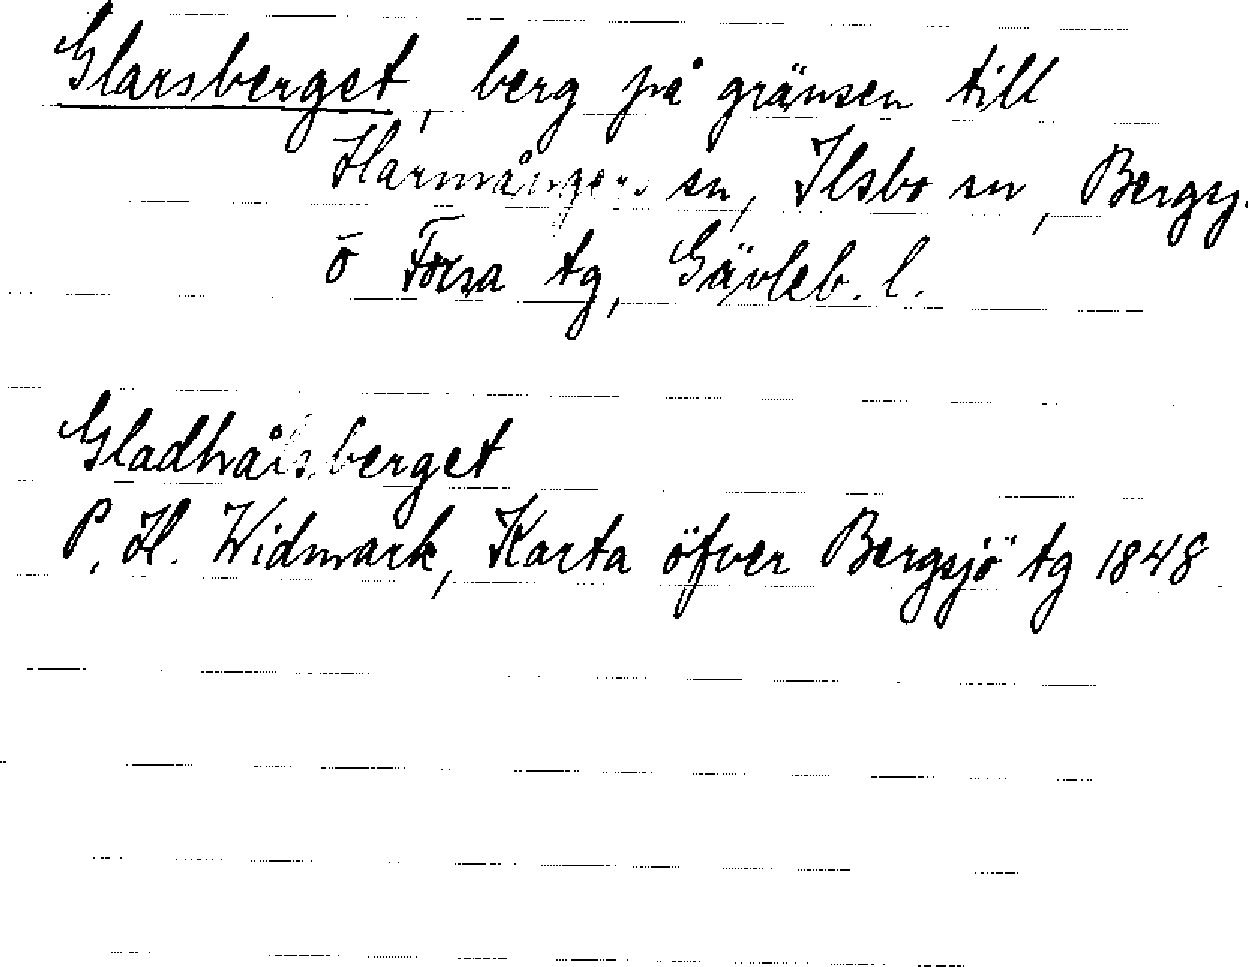 Glarsberget, berg på gränsen till
Harmångers sn, Ilsbo sn, Bergsj.
o Forsa tg, Gävleb. l.
Gladhålsberget
P. H. Widmark, Karta öfver Bergsjö tg 1848